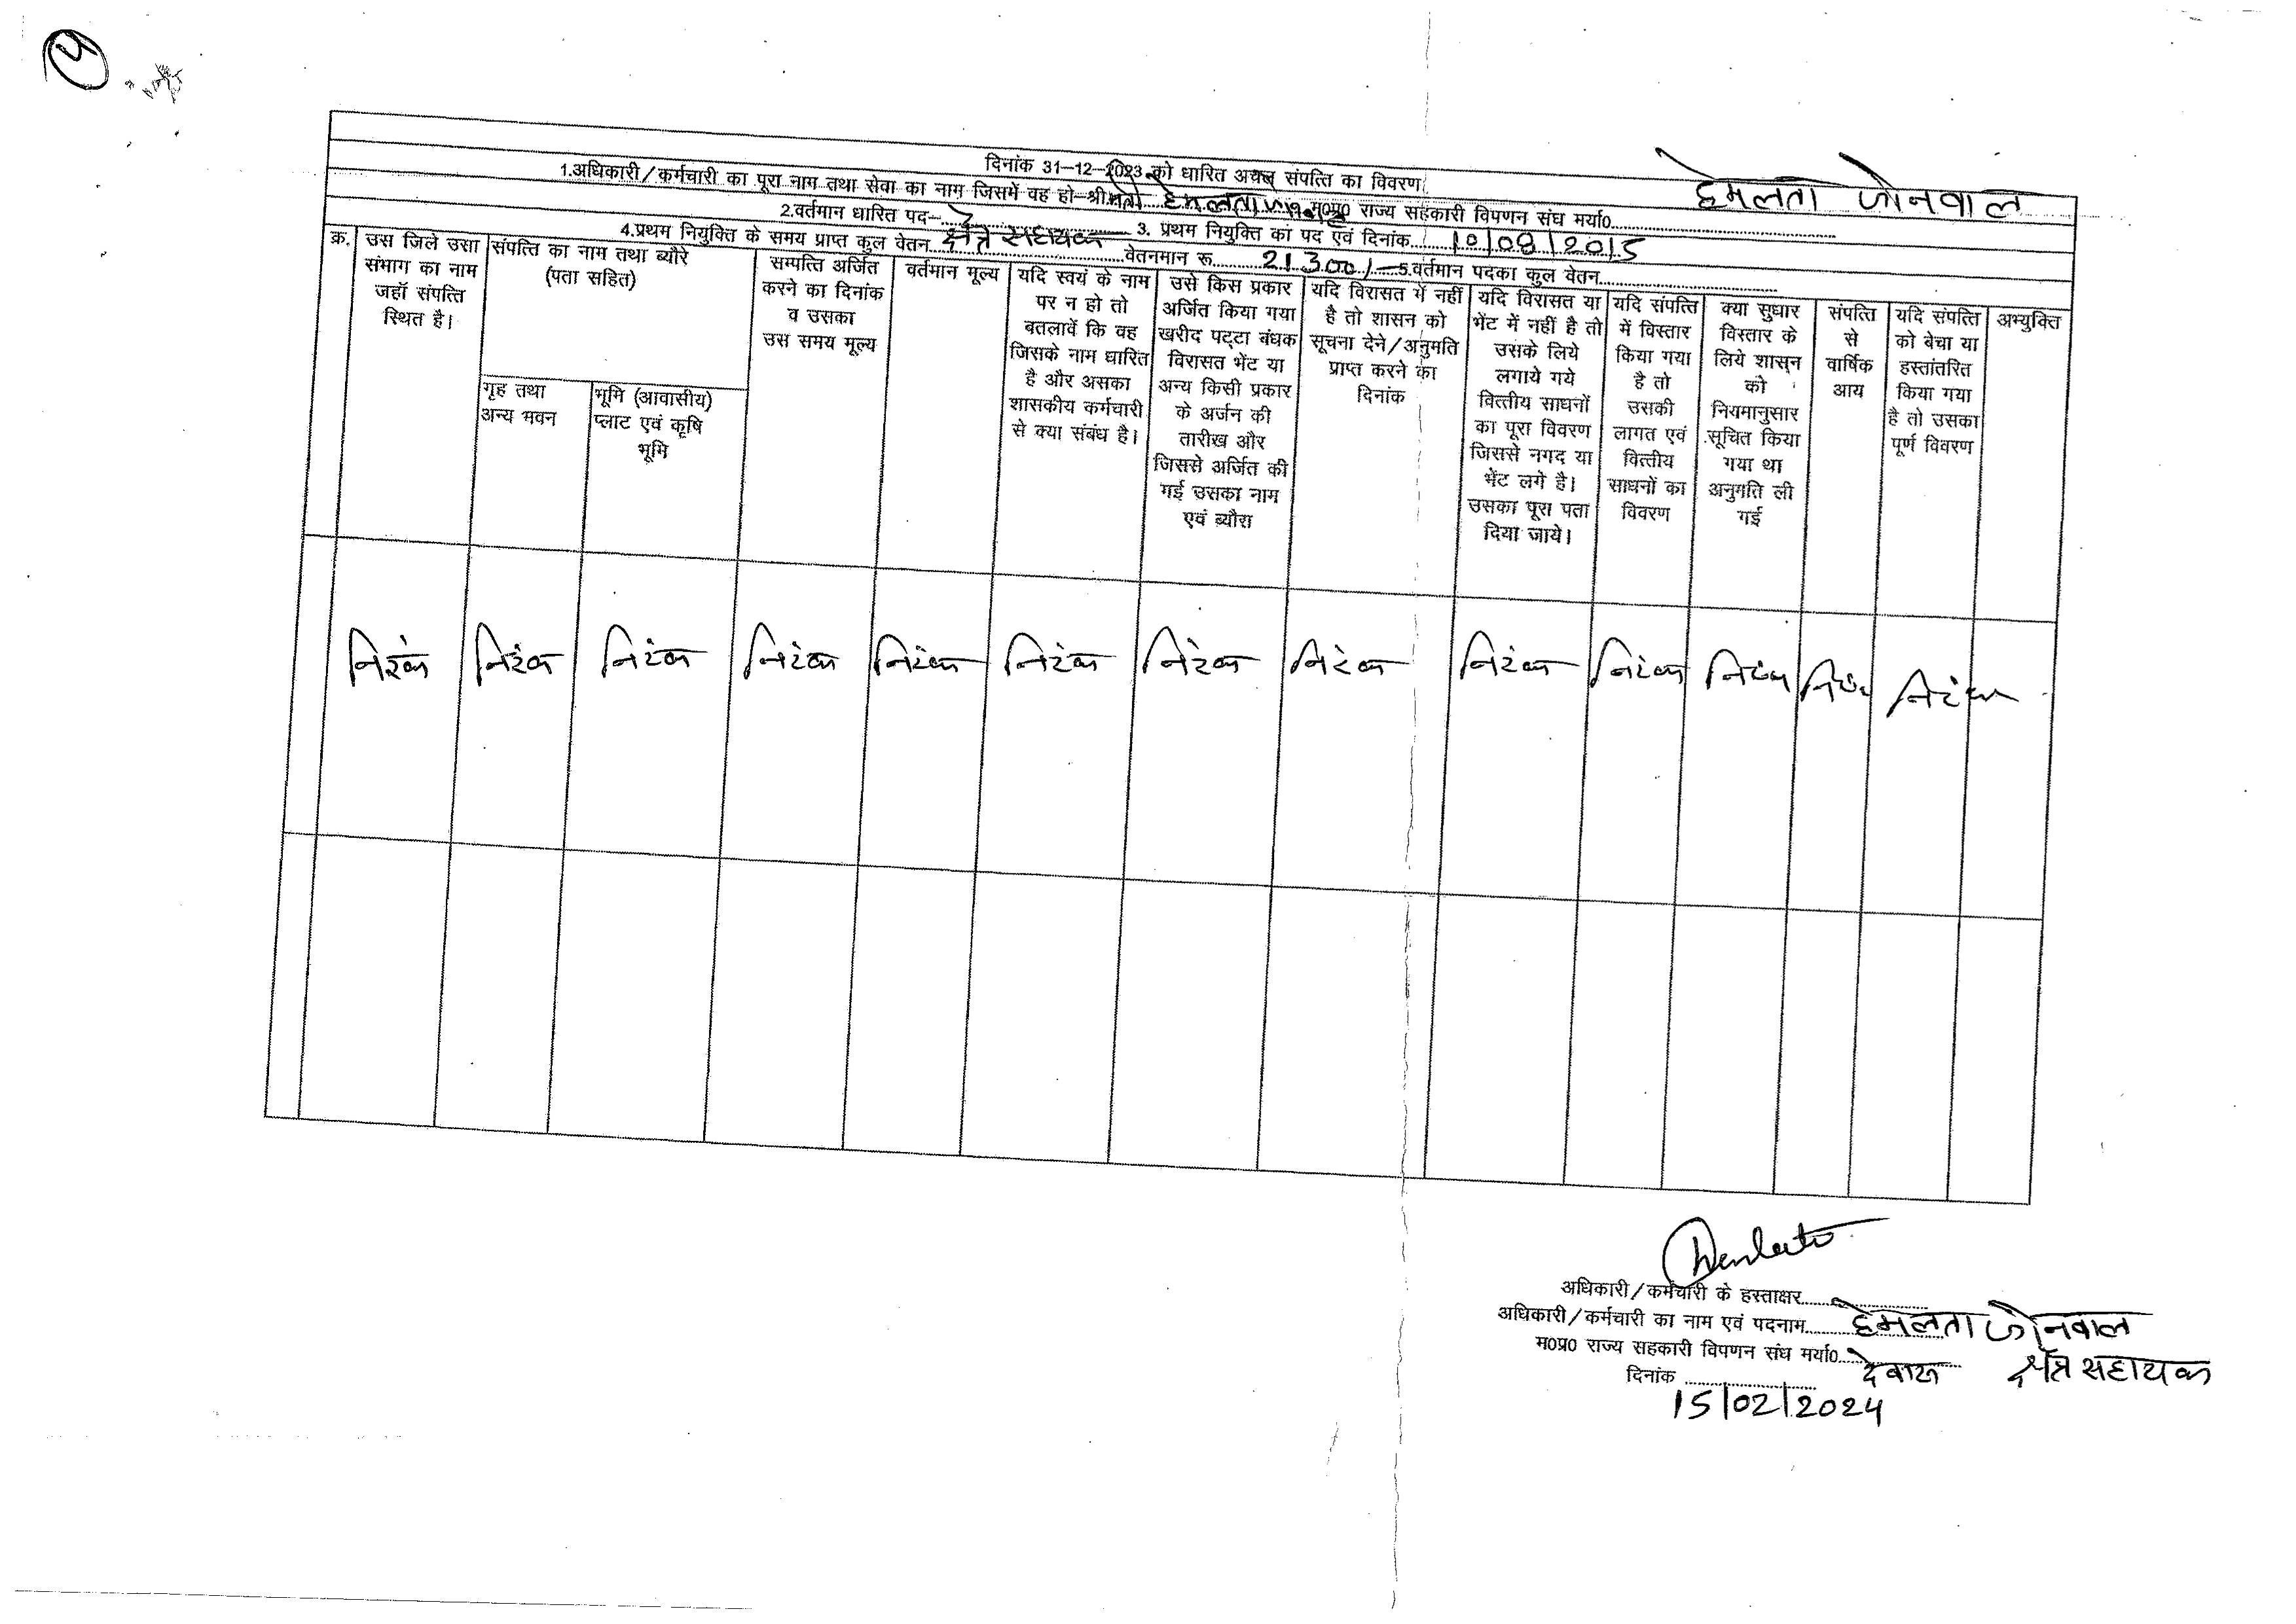 ५
हेमलता जोनवाल
दिनांक 31-12-2023 को धारित अचल संपत्ति का विवरण
1.अधिकारी/कर्मचारी का पूरा नाम तथा सेवा का नाम जिसमें वह हो-श्रीमती हेमलता म0प्र0 राज्य सहकारी विपणन संघ मर्या0
2.वर्तमान धारित पद- क्षेत्र सहायक 3. प्रथम नियुक्ति का पद एवं दिनांक 10/08/2015
4.प्रथम नियुक्ति के समय प्राप्त कुल वेतन वेतनमान रू 21300/- 5.वर्तमान पदका कुल वेतन
क्र.
उस जिले उसा
संभाग का नाम
जहाॅ संपत्ति
स्थित है।
संपत्ति का नाम तथा ब्यौरे
(पता सहित)
गृह तथा
अन्य भवन
भूमि (आवासीय)
प्लाट एवं कृषि
भूमि
सम्पत्ति अर्जित
करने का दिनांक
व उसका
उस समय मूल्य
वर्तमान मूल्य
यदि स्वयं के नाम
पर न हो तो
बतलावें कि वह
जिसके नाम धारित
है और असका
शासकीय कर्मचारी
से क्या संबंध है।
उसे किस प्रकार
अर्जित किया गया
खरीद पट्टा बंधक
विरासत भेंट या
अन्य किसी प्रकार
के अर्जन की
तारीख और
जिससे अर्जित की
गई उसका नाम
एवं ब्यौरा
यदि विरासत में नहीं
है तो शासन को
सूचना देने/अनुमति
प्राप्त करने का
दिनांक
यदि विरासत या
भेंट में नहीं है तो
उसके लिये
लगाये गये
वित्तीय साधनों
का पूरा विवरण
जिससे नगद या
भेंट लगे है।
उसका पूरा पता
दिया जाये।
यदि संपत्ति
में विस्तार
किया गया
है तो
उसकी
लागत एवं
वित्तीय
साधनों का
विवरण
क्या सुधार
विस्तार के
लिये शासन
को
नियमानुसार
सूचित किया
गया था
अनुमति ली
गई
संपत्ति
से
वार्षिक
आय
यदि संपत्ति
को बेचा या
हस्तांतरित
किया गया
है तो उसका
पूर्ण विवरण
अभ्युक्ति
निरंक निरंक निरंक निरंक निरंक निरंक निरंक निरंक निरंक निरंक निरंक निरंक निरंक
अधिकारी/कर्मचारी के हस्ताक्षर
अधिकारी/कर्मचारी का नाम एवं पदनाम हेमलता जोनवाल
म0प्र0 राज्य सहकारी विपणन संघ मर्या0 देवास क्षेत्र सहायक
दिनांक
15/02/2024